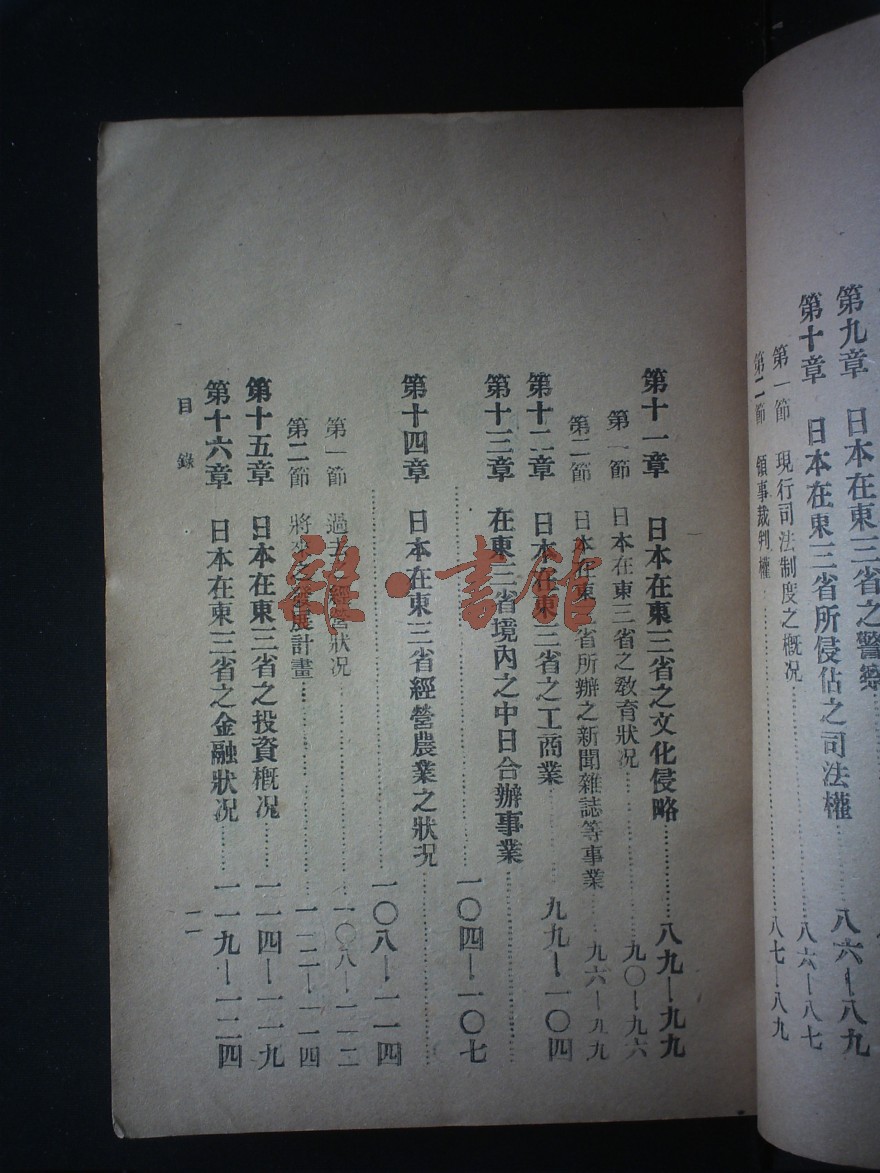 第九章　日本在東三省之警察
第十章　日本在東三省所侵佔之司法權……八六－八九
第一節　現行司法制度之概况……八六－八七
第二節　領事裁判權……八七－八九
第十一章　日本在東三省之文化侵略……八九－九九
第一節　日本在東三省之教育狀况……九〇－九六
第二節　日本在東三省所辦之新聞雜誌等事業……九六－九九
第十二章　日本在東三省之工商業……九九－一〇四
第十三章　在東三省境內之中日合辦事業……
……一〇四－一〇七
第十四章　日本在東三省經營農業之狀况……
……一〇八－一一四
第一節　過去之經營狀况……一〇八－一一二
第二節　將來之發展計畫……一一二－一一四
第十五章　日本在東三省之投資概况……一一四－一一九
第十六章　日本在東三省之金融狀况……一一九－一二四
目錄
雜·書館